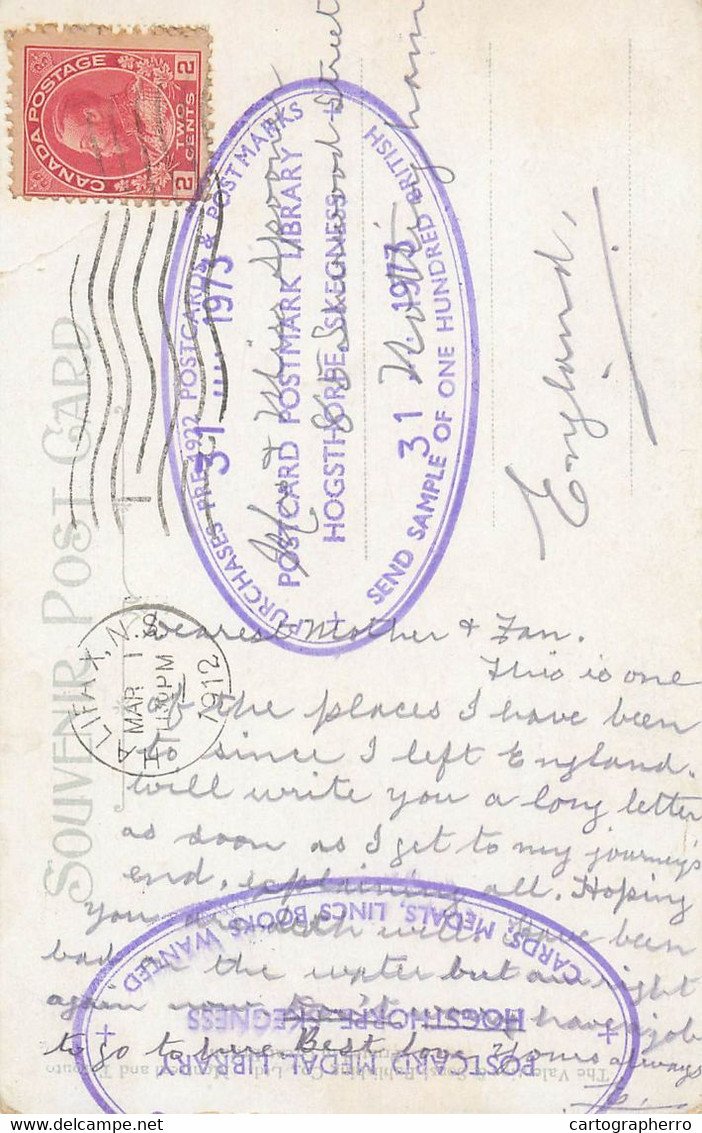 CANADA POSTAGE
2 TWO CENTS 2
SOUVENIR POST CARD
HALIFAX, N.S.
MAR 1
30 PM
1912
PURCHASES PRE-1922 POSTCARDS & POSTMARKS
31 1973
POSTCARD POSTMARK LIBRARY
HOGSTHORPE, SKEGNESS
31 1973
SEND SAMPLE OF ONE HUNDRED BRITISH
Mr & Miss
Street
Nottingham
England.
Dearest Mother & Fan.
This is one
of the places I have been
to since I left England.
Will write you a long letter
as soon as I get to my journey's
end, explaining all. Hoping
you are both well, have been
bad on the water but am right
again now have a job
to go to here. Best love Yours always
CARDS, MEDALS, LINCS BOOKS WANTED
HOGSTHORPE SKEGNESS
POSTCARD MEDAL LIBRARY
The Valentine & Sons Publishing Co., Ltd., Montreal and Toronto
cartographerro
cartographerro